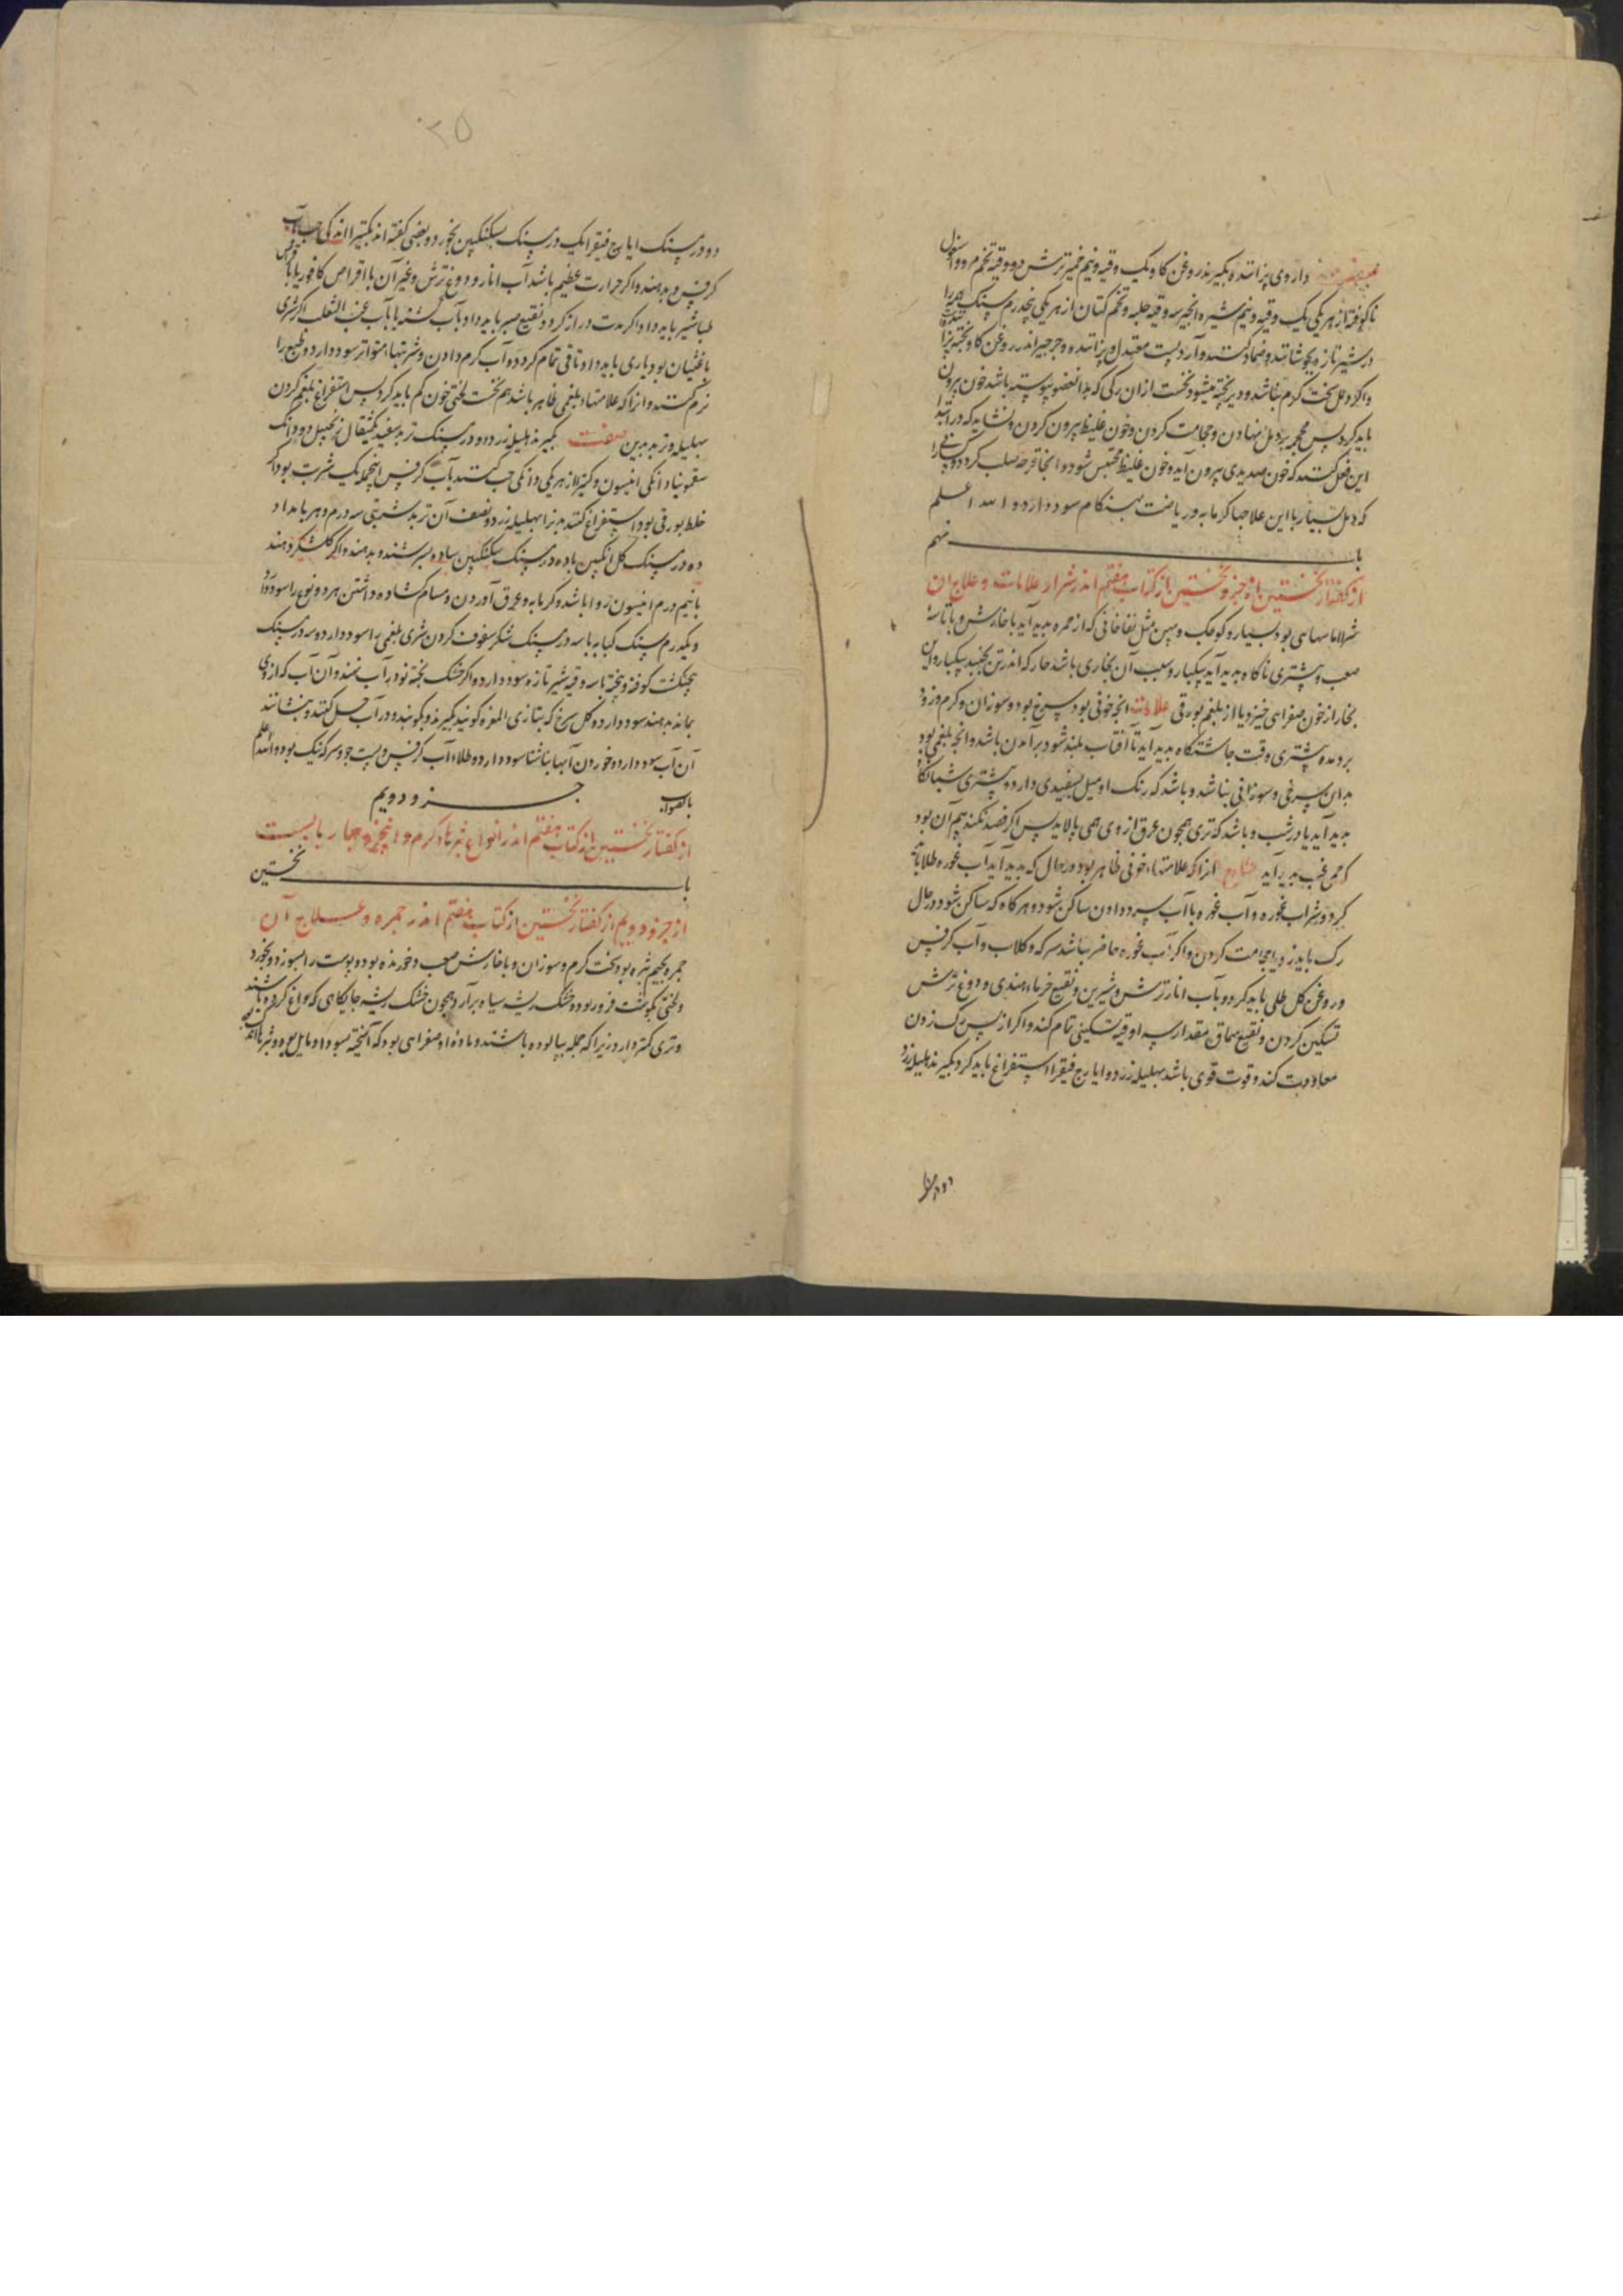 داروی پزاننده بگیرند روغن کاو یک وقیه و نیم خمیر ترش دو وقیه تخم مرو و
ناکوفته از هر یکی یک وقیه و نیم شیره انجیر سه وقیه حلبه و تخم کتان از هر یکی پنجدرم سنک
در شیر تازه بجوشانند و ضماد کنند و آرد پست معتدل پزاننده و جرجیر اندر روغن کاو پخته
واکر دمل سخت کرم نباشد و دیر پخته میشود نخست از ان رکی که بدانعضو پیوسته باشد خون بیرون
باید کرد پس محجمه بر دمل نهادن و حجامت کردن و خون غلیظ بیرون کردن و نشاید که در ابتدا
این فعل کنند که خون صدیدی بیرون آید و خون غلیظ محتبس شود و انجا قرحه صلب کردد و کسی را
که دمل بسیار با این علاجها کرمابه و ریاضت بهنکام سود دارد و الله اعلم
باب نهم
از کفتار نخستین از جزو نخستین از کتاب هفتم اندر شرا و علامات و علاج آن
شرا اماسهای بود بسیار و کوچک و پهن مثل نفاخاتی که از حمره پدید آید با خارش و با تاسهٔ
صعب و بیشتری ناکاه پدید آید بیکبار و سبب آن بخاری باشد حار که اندر تن بجنبد بیکبار و این
بخار از خون صفرایی خیزد یا از بلغم بورقی علامات انچه خونی بود سرخ بود و سوزان و کرم و زود
بر دمد و بیشتری وقت چاشتکاه پدید آید تا آفتاب بلند شود برآمدن باشد و انچه بلغمی بود
بدان سرخی و سوزانی نباشد و باشد که رنک او میل بسفیدی دارد و بیشتری شبانکاه
پدید آید یا در شب و باشد که تری همچون عرق از وی همی پالاید پس اکر فصد نکنند بیم آن بود
که حمی غب پدید آید علاج انرا که علامتهاء خونی ظاهر بود در حال که پدید آید آب غوره طلا باید
کرد و شراب غوره و آب غوره با آب سرد دادن ساکن شود و هر کاه که ساکن شود در حال
رک باید زد یا حجامت کردن و اکر آب غوره حاضر نباشد سرکه و کلاب و آب کرفس
و روغن کل طلی باید کرد و بآب انار ترش و شیرین و نقیع خرماء هندی و دوغ ترش
تسکین کردن و نقیع سماق مقدار سه اوقیه تسکینی تمام کند و اکر از پس رک زدن
معاودت کند و قوت قوی باشد بهلیله زرد و ایارج فیقرا استفراغ باید کرد بکیرند هلیله زرد
دو درم
۲۵
دو درمسنک ایارج فیقرا یک درمسنک بسکنکبین بخورد و بعضی کفته اند بکتیرا اندکی حب کند بآب
کرفس و بدهند و اکر حرارت عظیم باشد آب انار و دوغ ترش و غیر آن با اقراص کافور یا با قرص
طباشیر باید داد و اکر مدت دراز کردد نقیع صبر باید داد بآب کشنه یا بآب عنب الثعلب اکر شری
با غثیان بود یاری باید داد تا قی تمام کردد و آب کرم دادن و شربتهاء متواتر سود دارد و طبع را
نرم کنند و انرا که علامتهاء بلغمی ظاهر باشد هم نخست لختی خون کم باید کرد پس استفراغ بلغم کردن
بهلیله و تربد بدین صفت بکیرند هلیله زرد دو درمسنک تربد سفید یکمثقال زنجبیل دو دانک
سقمونیا دانکی انیسون و کتیرا از هر یکی دانکی حب کنند بآب کرفس اینجمله یک شربت بود و اکر
خلط بورقی بود استفراغ کنند بهلیله زرد و نصف آن تربد شربتی سه درم و هر بامداد
ده درمسنک کل انکبین با ده درمسنک سکنکبین ساده بسرشند و بدهند و اکر کلشکر دهند
با نیم درم انیسون روا باشد و کرمابه و عرق آوردن و مسام کشاده داشتن هر دو نوع را سود دارد
و یکدرم سنک کبابه با سه درمسنک شکر سفوف کردن شری بلغمی را سود دارد و سه درمسنک
پنجنکشت کوفته و بیخته با سه وقیه شیر تازه سود دارد و اکر خشک پخته نو در آب نهند و آن آب که از وی
بماند بدهند سود دارد و کل سرخ که بتازی المغره کویند بکیرند و بکوبند و در آب حل کنند و بنشانند
آن آب سود دارد و خوردن آبها ناشتا سود دارد و طلاء آب کرفس و پست جو و سرکه نیک بود و الله اعلم
بالصواب جزو دویم
از کفتار نخستین از کتاب هفتم اندر انواع بثرهاء کرم و انچه و چهار بابست
باب نخستین
از جزو دویم از کفتار نخستین از کتاب هفتم اندر جمره و علاج آن
جمره بجیم بثره بود سخت کرم و سوزان و با خارش صعب و خورنده بود و پوست را بسوزد و بخورد
و لختی بکوشت فرو رود و خشک ریشه سیاه برآرد همچون خشک ریشه جایکاهی که داغ کرده باشند
و تری کمتر دارد زیرا که جمله بپالوده باشند و ماده او صفرایی بود که آمیخته بسودا و مایل بود و بثرها